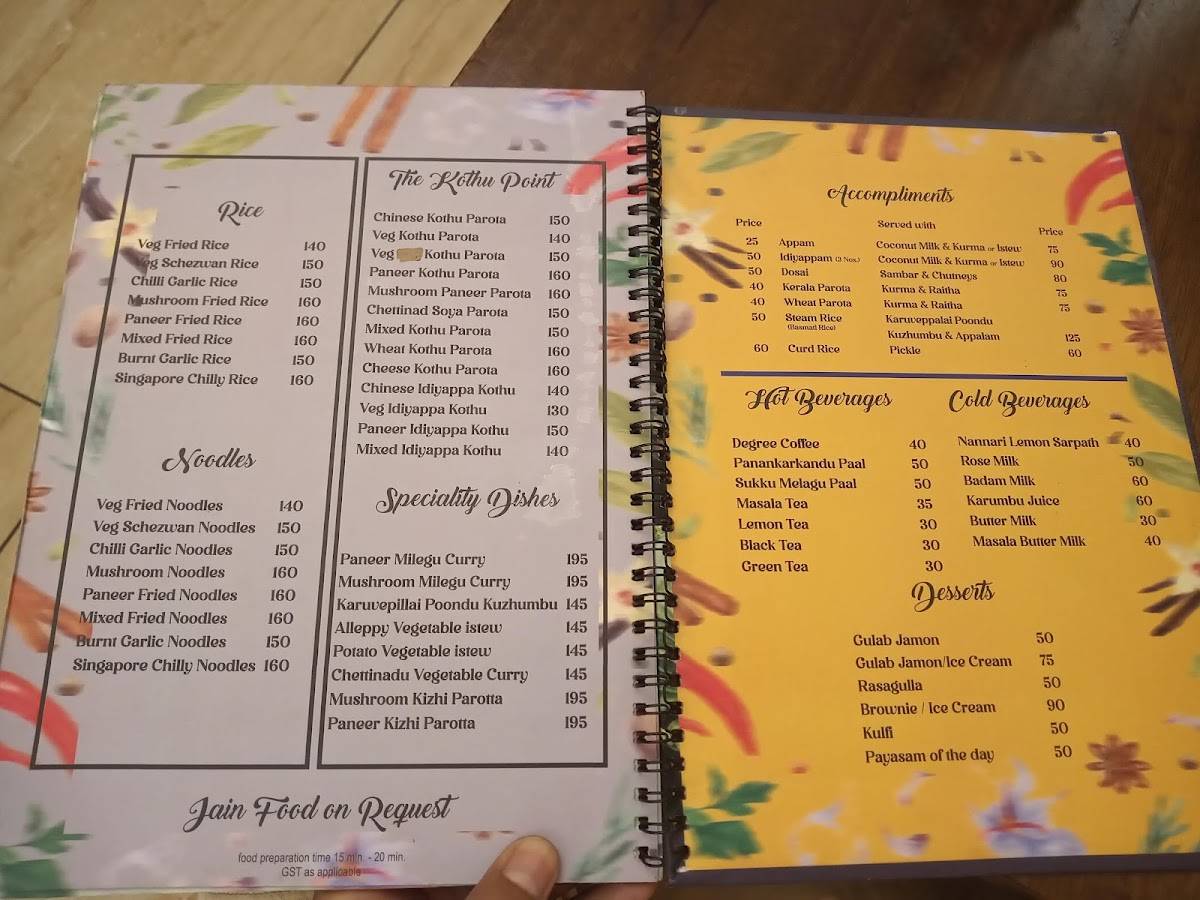 Rice
Veg Fried Rice 140
Veg Schezwan Rice 150
Chilli Garlic Rice 150
Mushroom Fried Rice 160
Paneer Fried Rice 160
Mixed Fried Rice 160
Burnt Garlic Rice 150
Singapore Chilly Rice 160
Noodles
Veg Fried Noodles 140
Veg Schezwan Noodles 150
Chilli Garlic Noodles 150
Mushroom Noodles 160
Paneer Fried Noodles 160
Mixed Fried Noodles 160
Burnt Garlic Noodles 150
Singapore Chilly Noodles 160
The Kothu Point
Chinese Kothu Parota 150
Veg Kothu Parota 140
Veg Kothu Parota 150
Paneer Kothu Parota 160
Mushroom Paneer Parota 160
Chettinad Soya Parota 150
Mixed Kothu Parota 150
Wheat Kothu Parota 160
Cheese Kothu Parota 160
Chinese Idiyappa Kothu 140
Veg Idiyappa Kothu 130
Paneer Idiyappa Kothu 150
Mixed Idiyappa Kothu 140
Speciality Dishes
Paneer Milegu Curry 195
Mushroom Milegu Curry 195
Karuvepillai Poondu Kuzhumbu 145
Alleppy Vegetable istew 145
Potato Vegetable istew 145
Chettinadu Vegetable Curry 145
Mushroom Kizhi Parotta 195
Paneer Kizhi Parotta 195
Jain Food on Request
food preparation time 15 min. - 20 min.
GST as applicable
Accompliments
Price Served with Price
25 Appam Coconut Milk & Kurma or Istew 75
50 Idiyappam (3 Nos.) Coconut Milk & Kurma or Istew 90
50 Dosai Sambar & Chutneys 80
40 Kerala Parota Kurma & Raitha 75
40 Wheat Parota Kurma & Raitha 75
50 Steam Rice Karuveppalai Poondu
(Basmati Rice) Kuzhumbu & Appalam 125
60 Curd Rice Pickle 60
Hot Beverages
Degree Coffee 40
Panankarkandu Paal 50
Sukku Melagu Paal 50
Masala Tea 35
Lemon Tea 30
Black Tea 30
Green Tea 30
Cold Beverages
Nannari Lemon Sarpath 40
Rose Milk 50
Badam Milk 60
Karumbu Juice 60
Butter Milk 30
Masala Butter Milk 40
Desserts
Gulab Jamon 50
Gulab Jamon/Ice Cream 75
Rasagulla 50
Brownie / Ice Cream 90
Kulfi 50
Payasam of the day 50